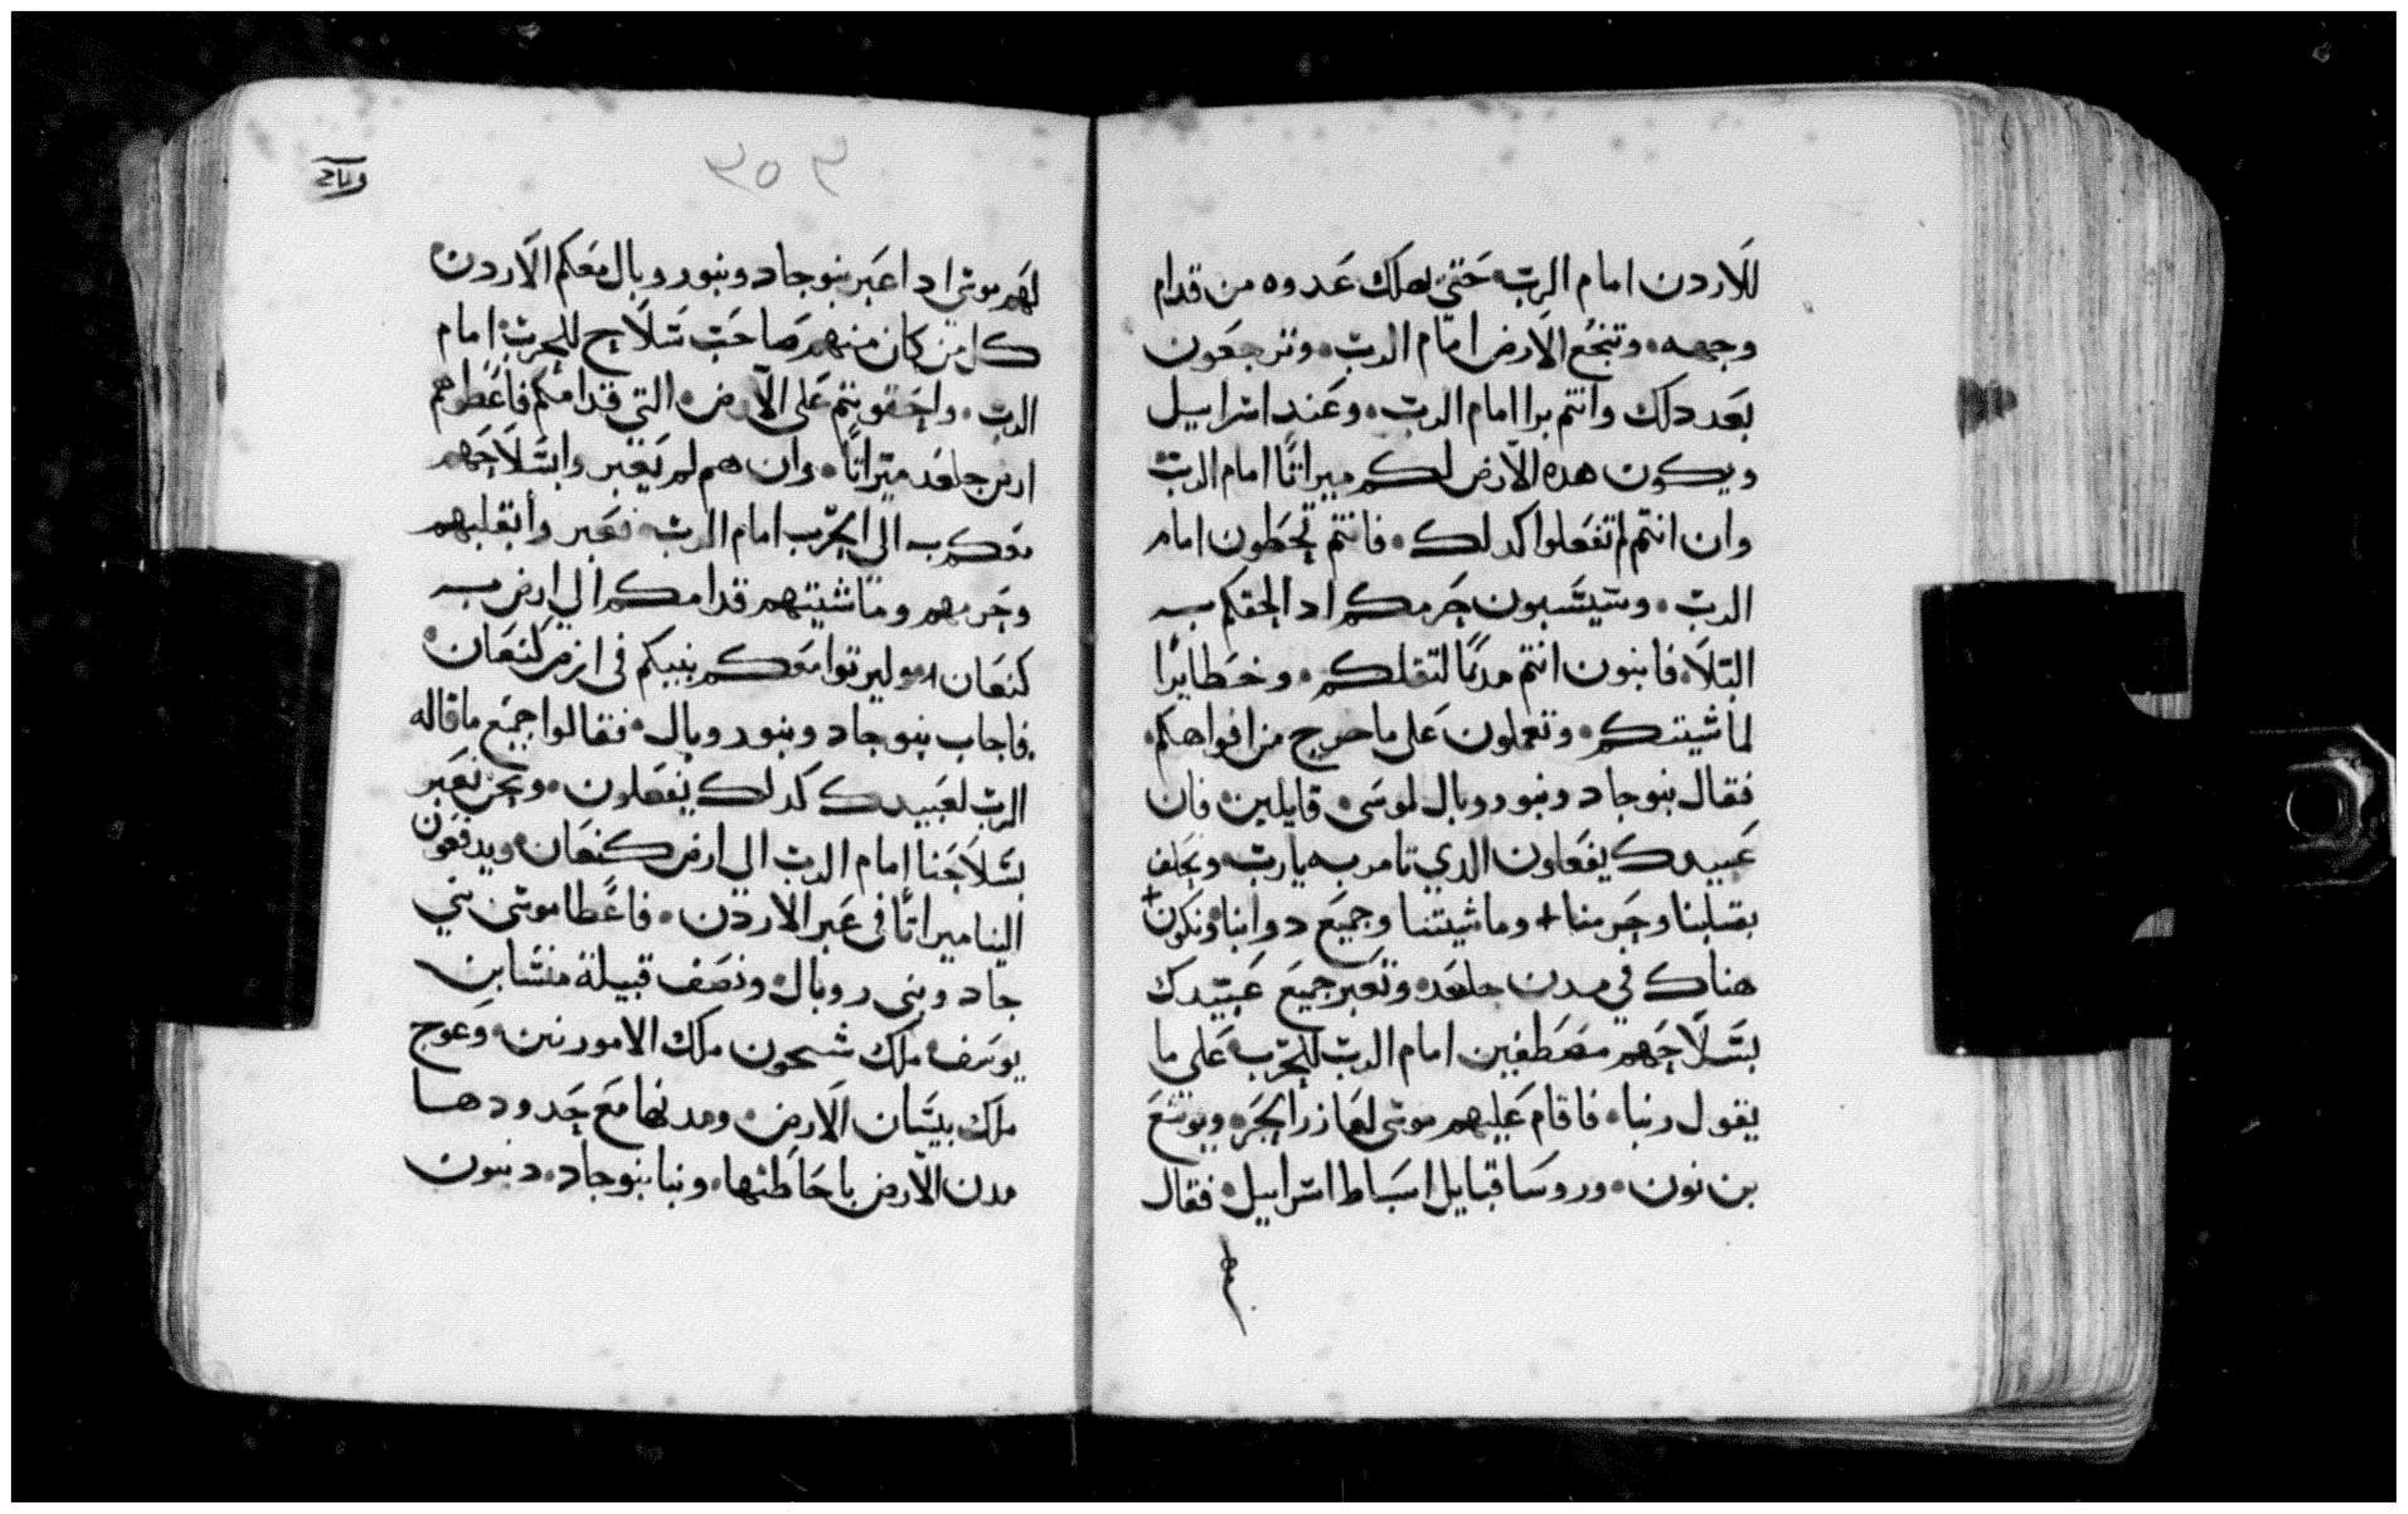 للاردن امام الرب حتي يهلك عدوه من قدام
وجهه وتنجع الارض امام الرب وترجعون
بعد دلك وانتم برا امام الرب وعند اسراييل
ويكون هده الارض لكم ميراتًا امام الرب
وان انتم لم تفعلوا كدلك فانتم تخطون امام
الرب وستسبون جرمكم اد الحقكم به
البلا فابنون انتم مدنًا لتقلكم وحظايرًا
لماشيتكم وتعملون على ما خرج من افواهكم
فقال بنو جاد وبنو روبال لموسى قايلين فان
عبيدك يفعلون الدي تامر به يارب ونخلف
بقبلنا وحرمنا + وماشيتنا وجميع دوابنا ونكون +
هناك في مدن جلعد وتعبر جميع عبيدك
بسلاحهم مصطفين امام الرب للحرب على ما
يقول ربنا فاقام عليهم موسى لعازر الحبر ويوشع
بن نون وروسا قبايل اسباط اسراييل فقال
٣٥٣
لهم موسى ادا عبر بنو جاد وبنو روبال معكم الاردن
كل من كان منهم صاحب سلاح للحرب امام
الرب واحقويتم على الارض التي قدامكم فاعطوهم
ارض جلعد ميراتًا وان هم لم يعبروا بسلاحهم
معكم الى الحرب امام الرب فعبروا بقلبهم
وحرمهم وماشيتهم قدامكم الي ارض
كنعان وليرتوا معكم بنيكم في ارض كنعان
فاجاب بنو جاد وبنو روبال فقالوا جميع ما قاله
الرب لعبيدك كدلك يفعلون ونحن نعبر
بسلاحنا امام الرب الي ارض كنعان ويدفعون
الينا ميراتًا في عبر الاردن فاعطا موسى بني
جاد وبني روبال ونصف قبيلة منسا بن
يوسف ملك سيحون ملك الامورنين وعوج
ملك بيسان الارض ومدنها مع حدودها
مدن الارض باحاطتها وبنا بنو جاد ديبون